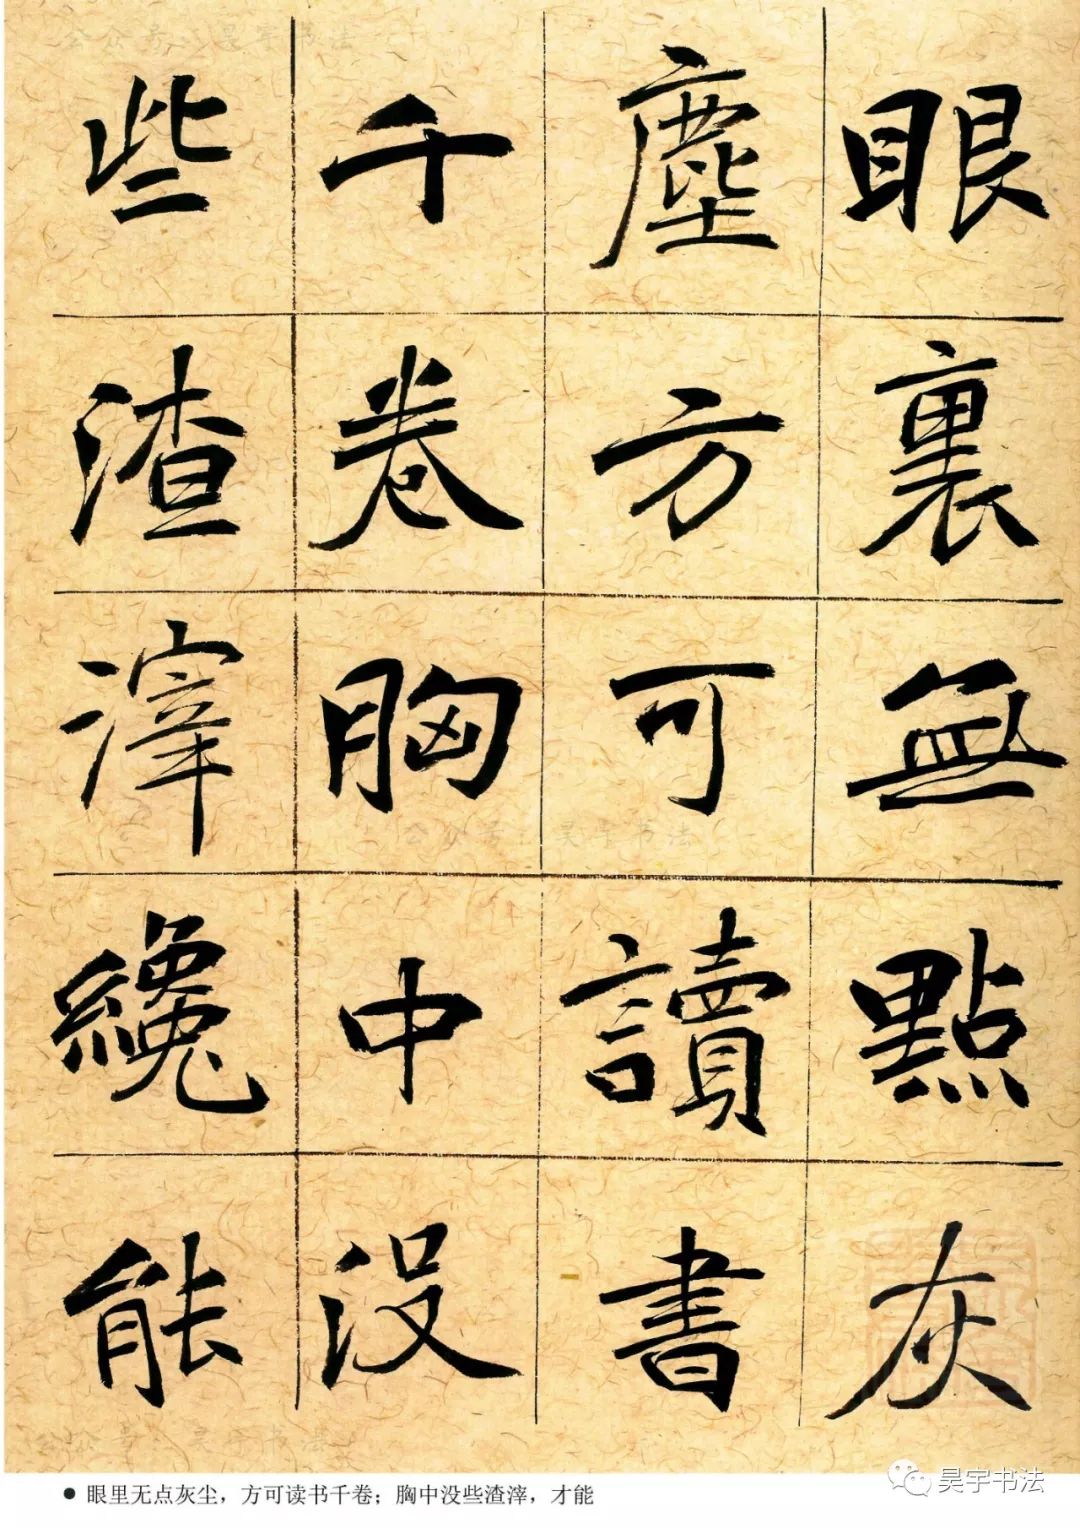 眼裏無點灰
塵方可讀書
千卷胸中没
些渣滓纔能
● 眼里无点灰尘，方可读书千卷；胸中没些渣滓，才能
昊宇书法
公众号：昊宇书法
公众号：昊宇书法
公众号：昊宇书法